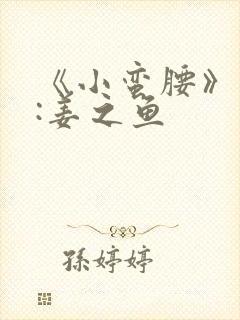 《小蛮腰》
:姜之鱼
孫婷婷